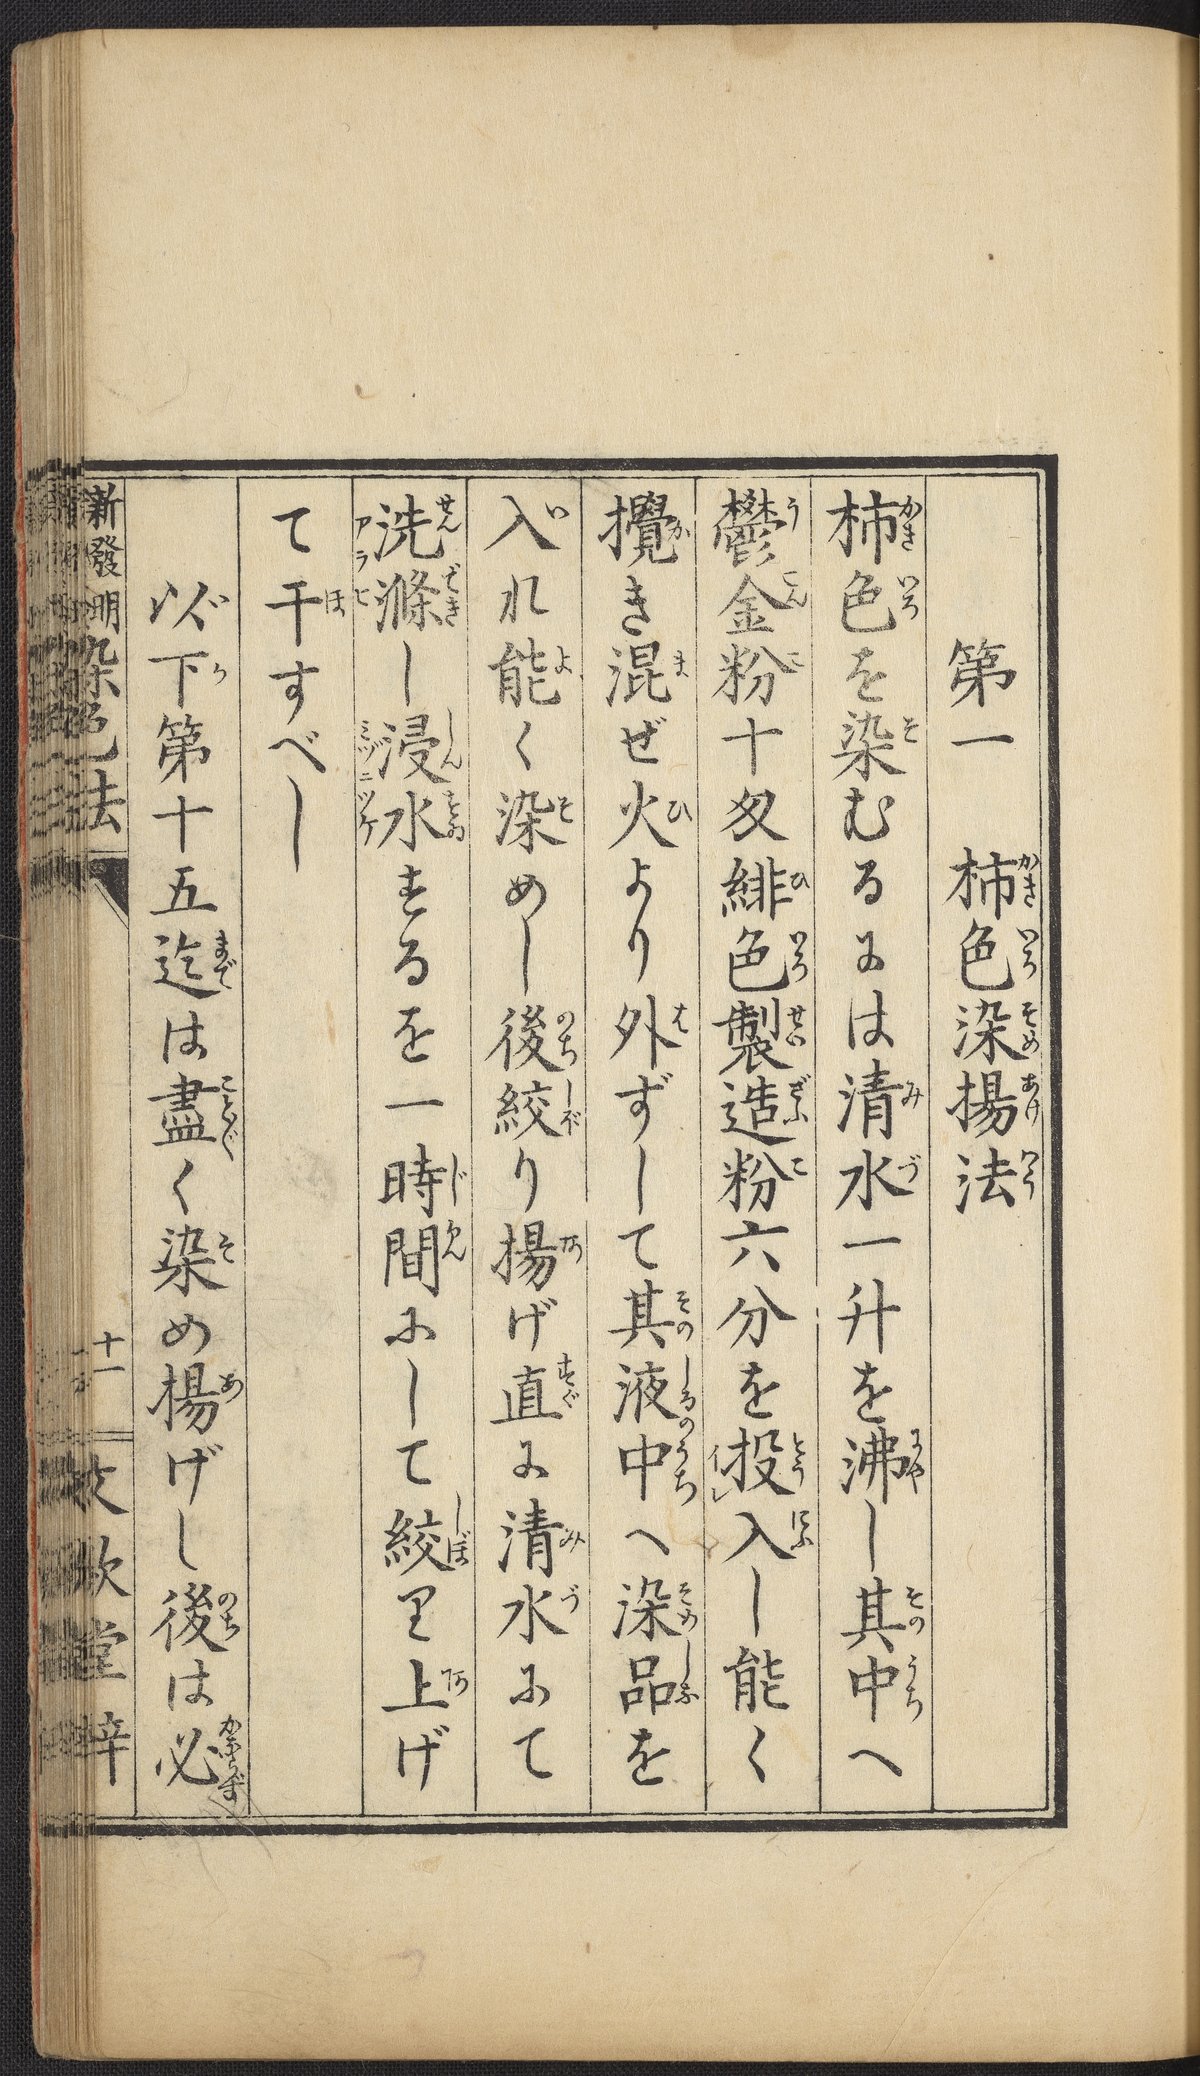 第一　柿色染揚法
柿色を染むるには清水一升を沸し其中へ
鬱金粉十匁緋色製造粉六分を投入し能く
攪き混ぜ火より外ずして其液中へ染品を
入れ能く染めし後絞り揚げ直に清水にて
洗滌し浸水するを一時間にして絞り上げ
て干すべし
以下第十五迄は盡く染め揚げし後は必
新發明染色法
十一
文欽堂梓